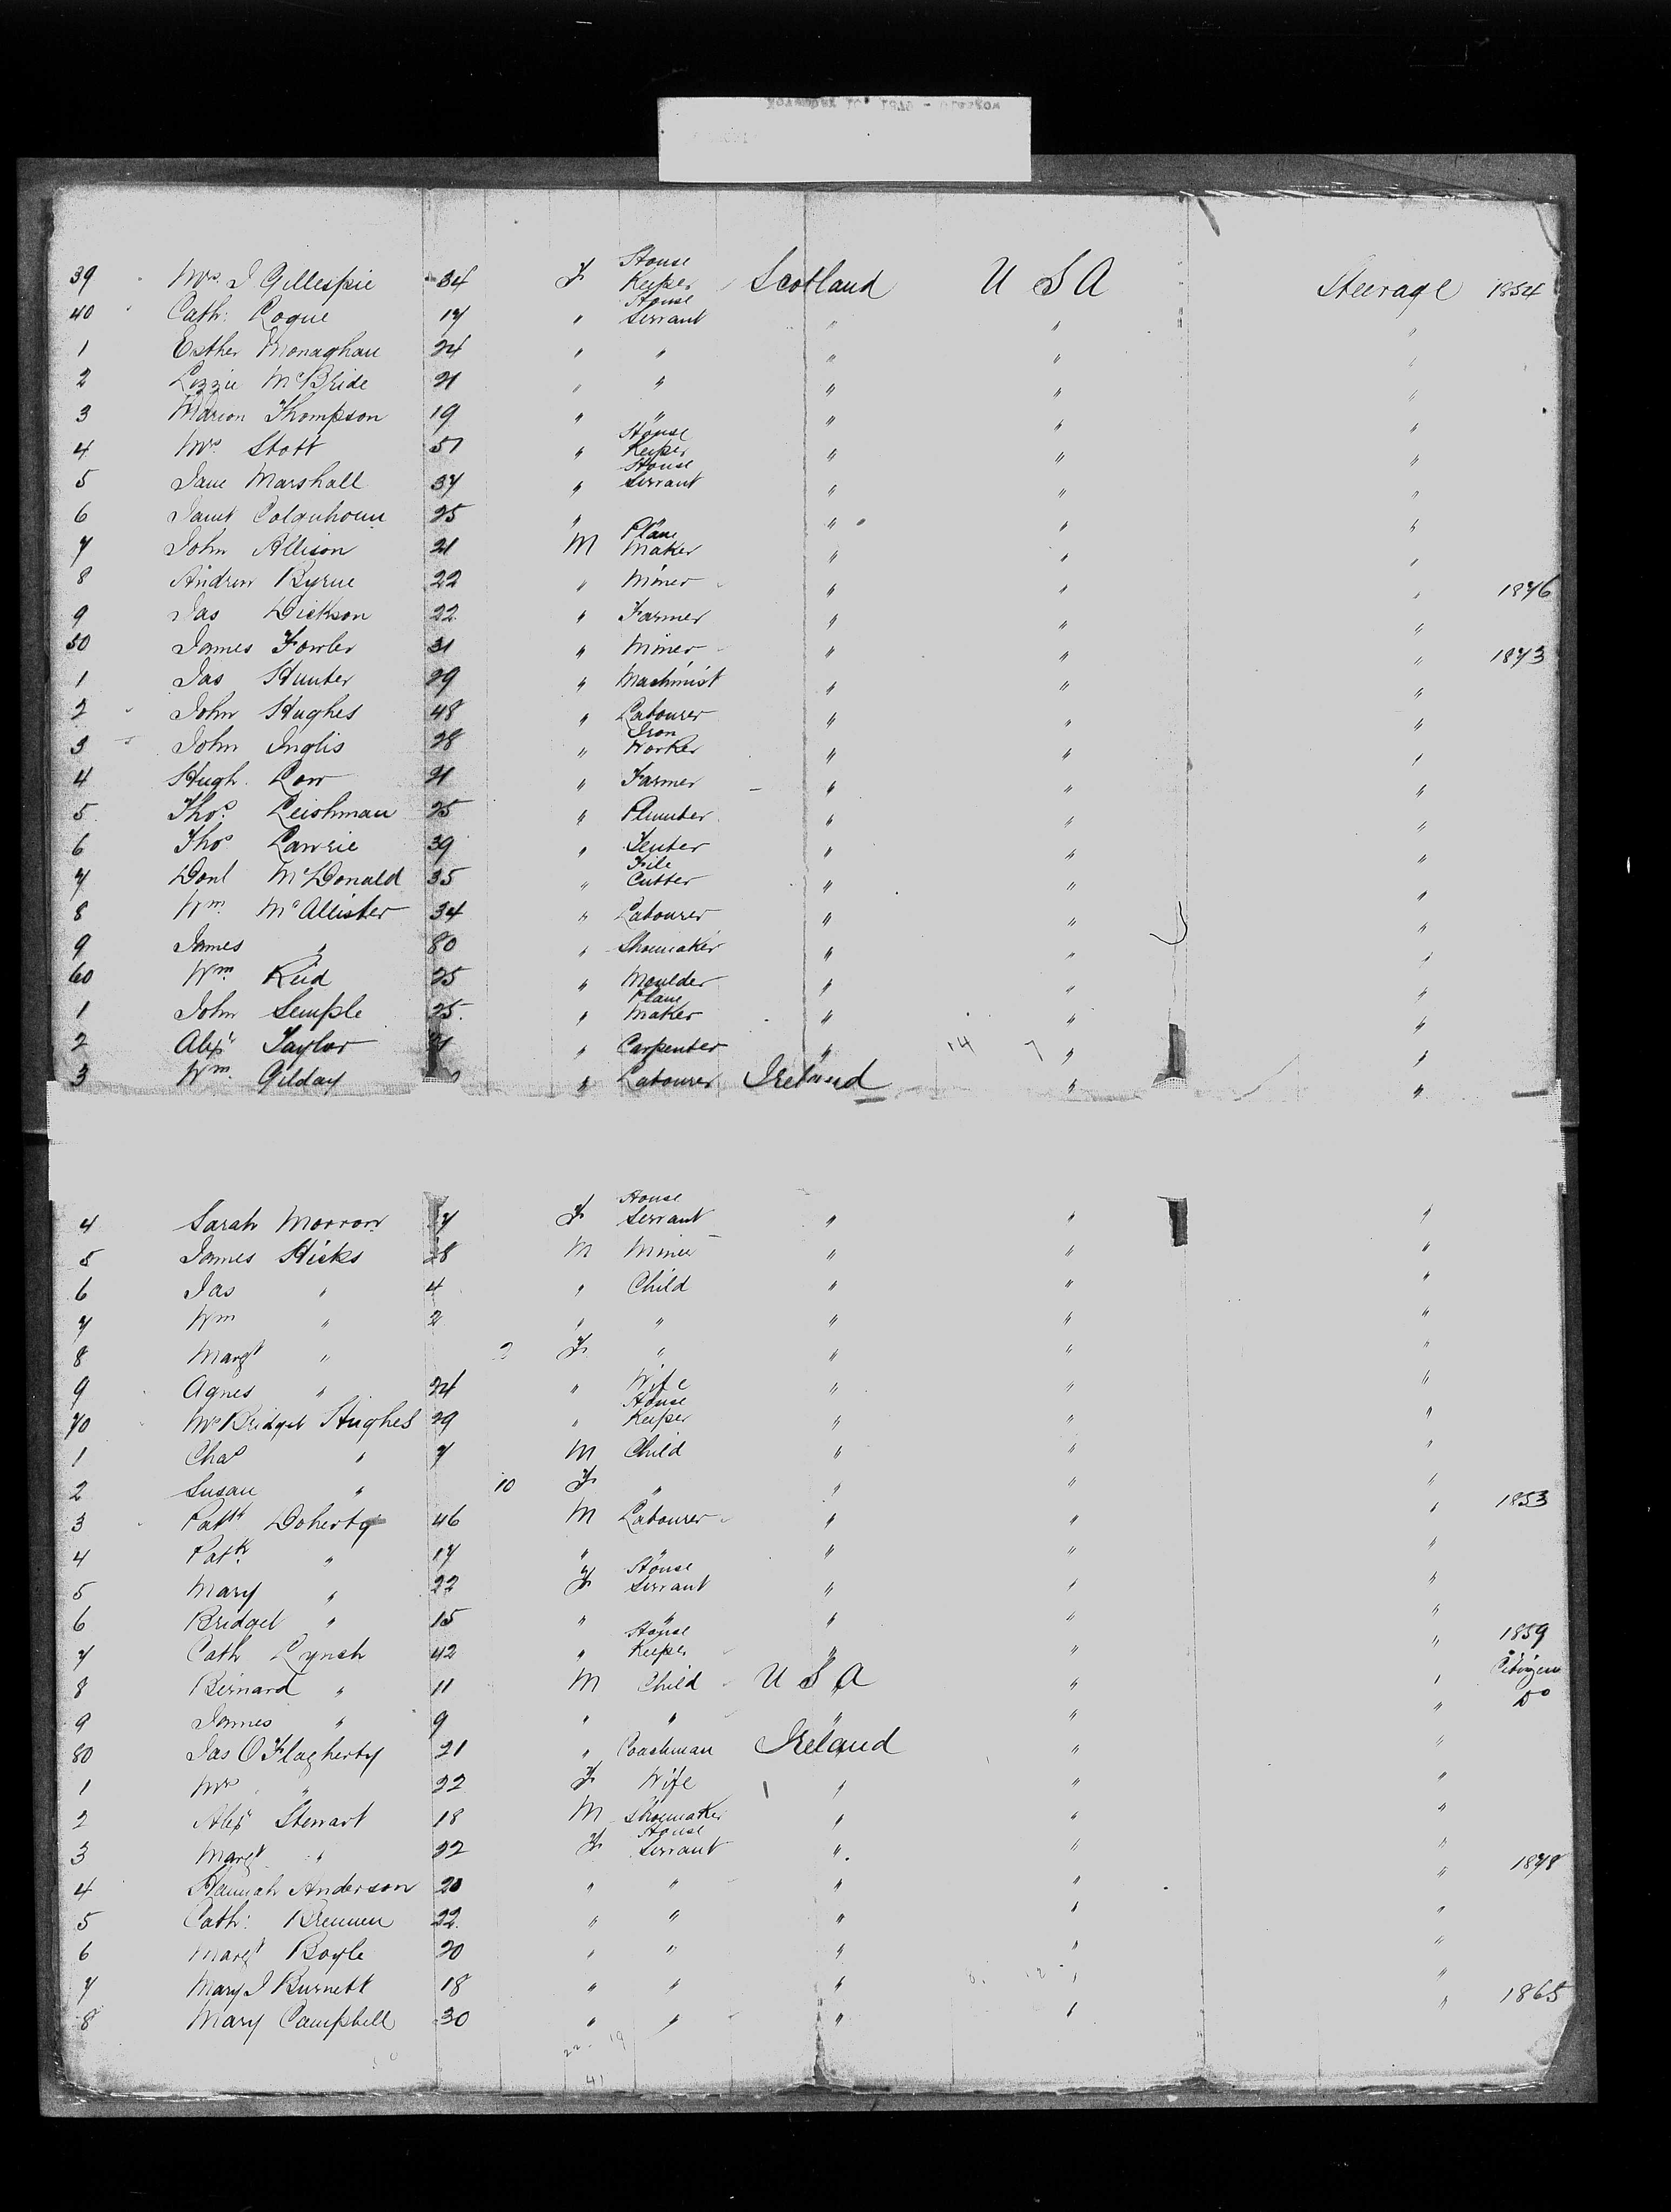 39 Mrs. J Gillespie 34 F House Keeper Scotland U S A Steerage 1854
40 Cath: Logue 17 " House Servant " " "
1 Esther Monaghan 24 " " " " "
2 Lizzie McBride 21 " " " " "
3 Marion Thompson 19 " " " " "
4 Mrs. Stott 51 " House Keeper " " "
5 Jane Marshall 37 " House Servant " " "
6 Janet Colquhoun 25 " " " " "
7 John Allison 21 M Plane Maker " " "
8 Andrew Byrne 22 " Miner " " " 1876
9 Jas Dickson 22 " Farmer " " "
50 James Fowler 31 " Miner " " " 1873
1 Jas Hunter 29 " Machinist " " "
2 John Hughes 48 " Labourer " " "
3 John Inglis 28 " Iron Worker " " "
4 Hugh Low 21 " Farmer " " "
5 Thos. Leishman 25 " Plumber " " "
6 Thos Lawrie 39 " Tenter " " "
7 Donl McDonald 35 " File Cutter " " "
8 Wm. McAllister 34 " Labourer " " "
9 James " 80 " Shoemaker " " "
60 Wm. Reid 25 " Moulder " " "
1 John Semple 25 " Plane Maker " " "
2 Alexr Taylor " Carpenter " 14 7 " "
3 Wm. Gilday " Labourer Ireland " "
4 Sarah Morrow F House Servant " " "
5 James Hicks 28 M Miner " " "
6 Jas " 4 " Child " " "
7 Wm " 2 " " " " "
8 Margt " F " " " "
9 Agnes " 24 " Wife " " "
70 Mrs Bridget Hughes 29 " House Keeper " " "
1 Chas " 7 M Child " " "
2 Susan " 10 F " " " "
3 Patk Doherty 46 M Labourer " " " 1853
4 Patk. " 17 " " " " "
5 Mary " 22 F House Servant " " "
6 Bridget " 15 " " " " "
7 Cath Lynch 42 " House Keeper " " " 1859
8 Bernard " 11 M Child U S A " " Citizen
9 James " 9 " " " " " Do
80 Jas O'Flagherty 21 " Coachman Ireland " "
1 Mrs " 22 F Wife " " "
2 Alexr Stewart 18 M Shoemaker " " "
3 Margt " 22 F House Servant " " "
4 Hannah Anderson 20 " " " " " 1878
5 Cath: Brennen 22 " " " " "
6 Margt Boyle 20 " " " " "
7 Mary J Burnett 18 " " " " "
8 Mary Campbell 30 " " " " " 1865
22 - 19
41